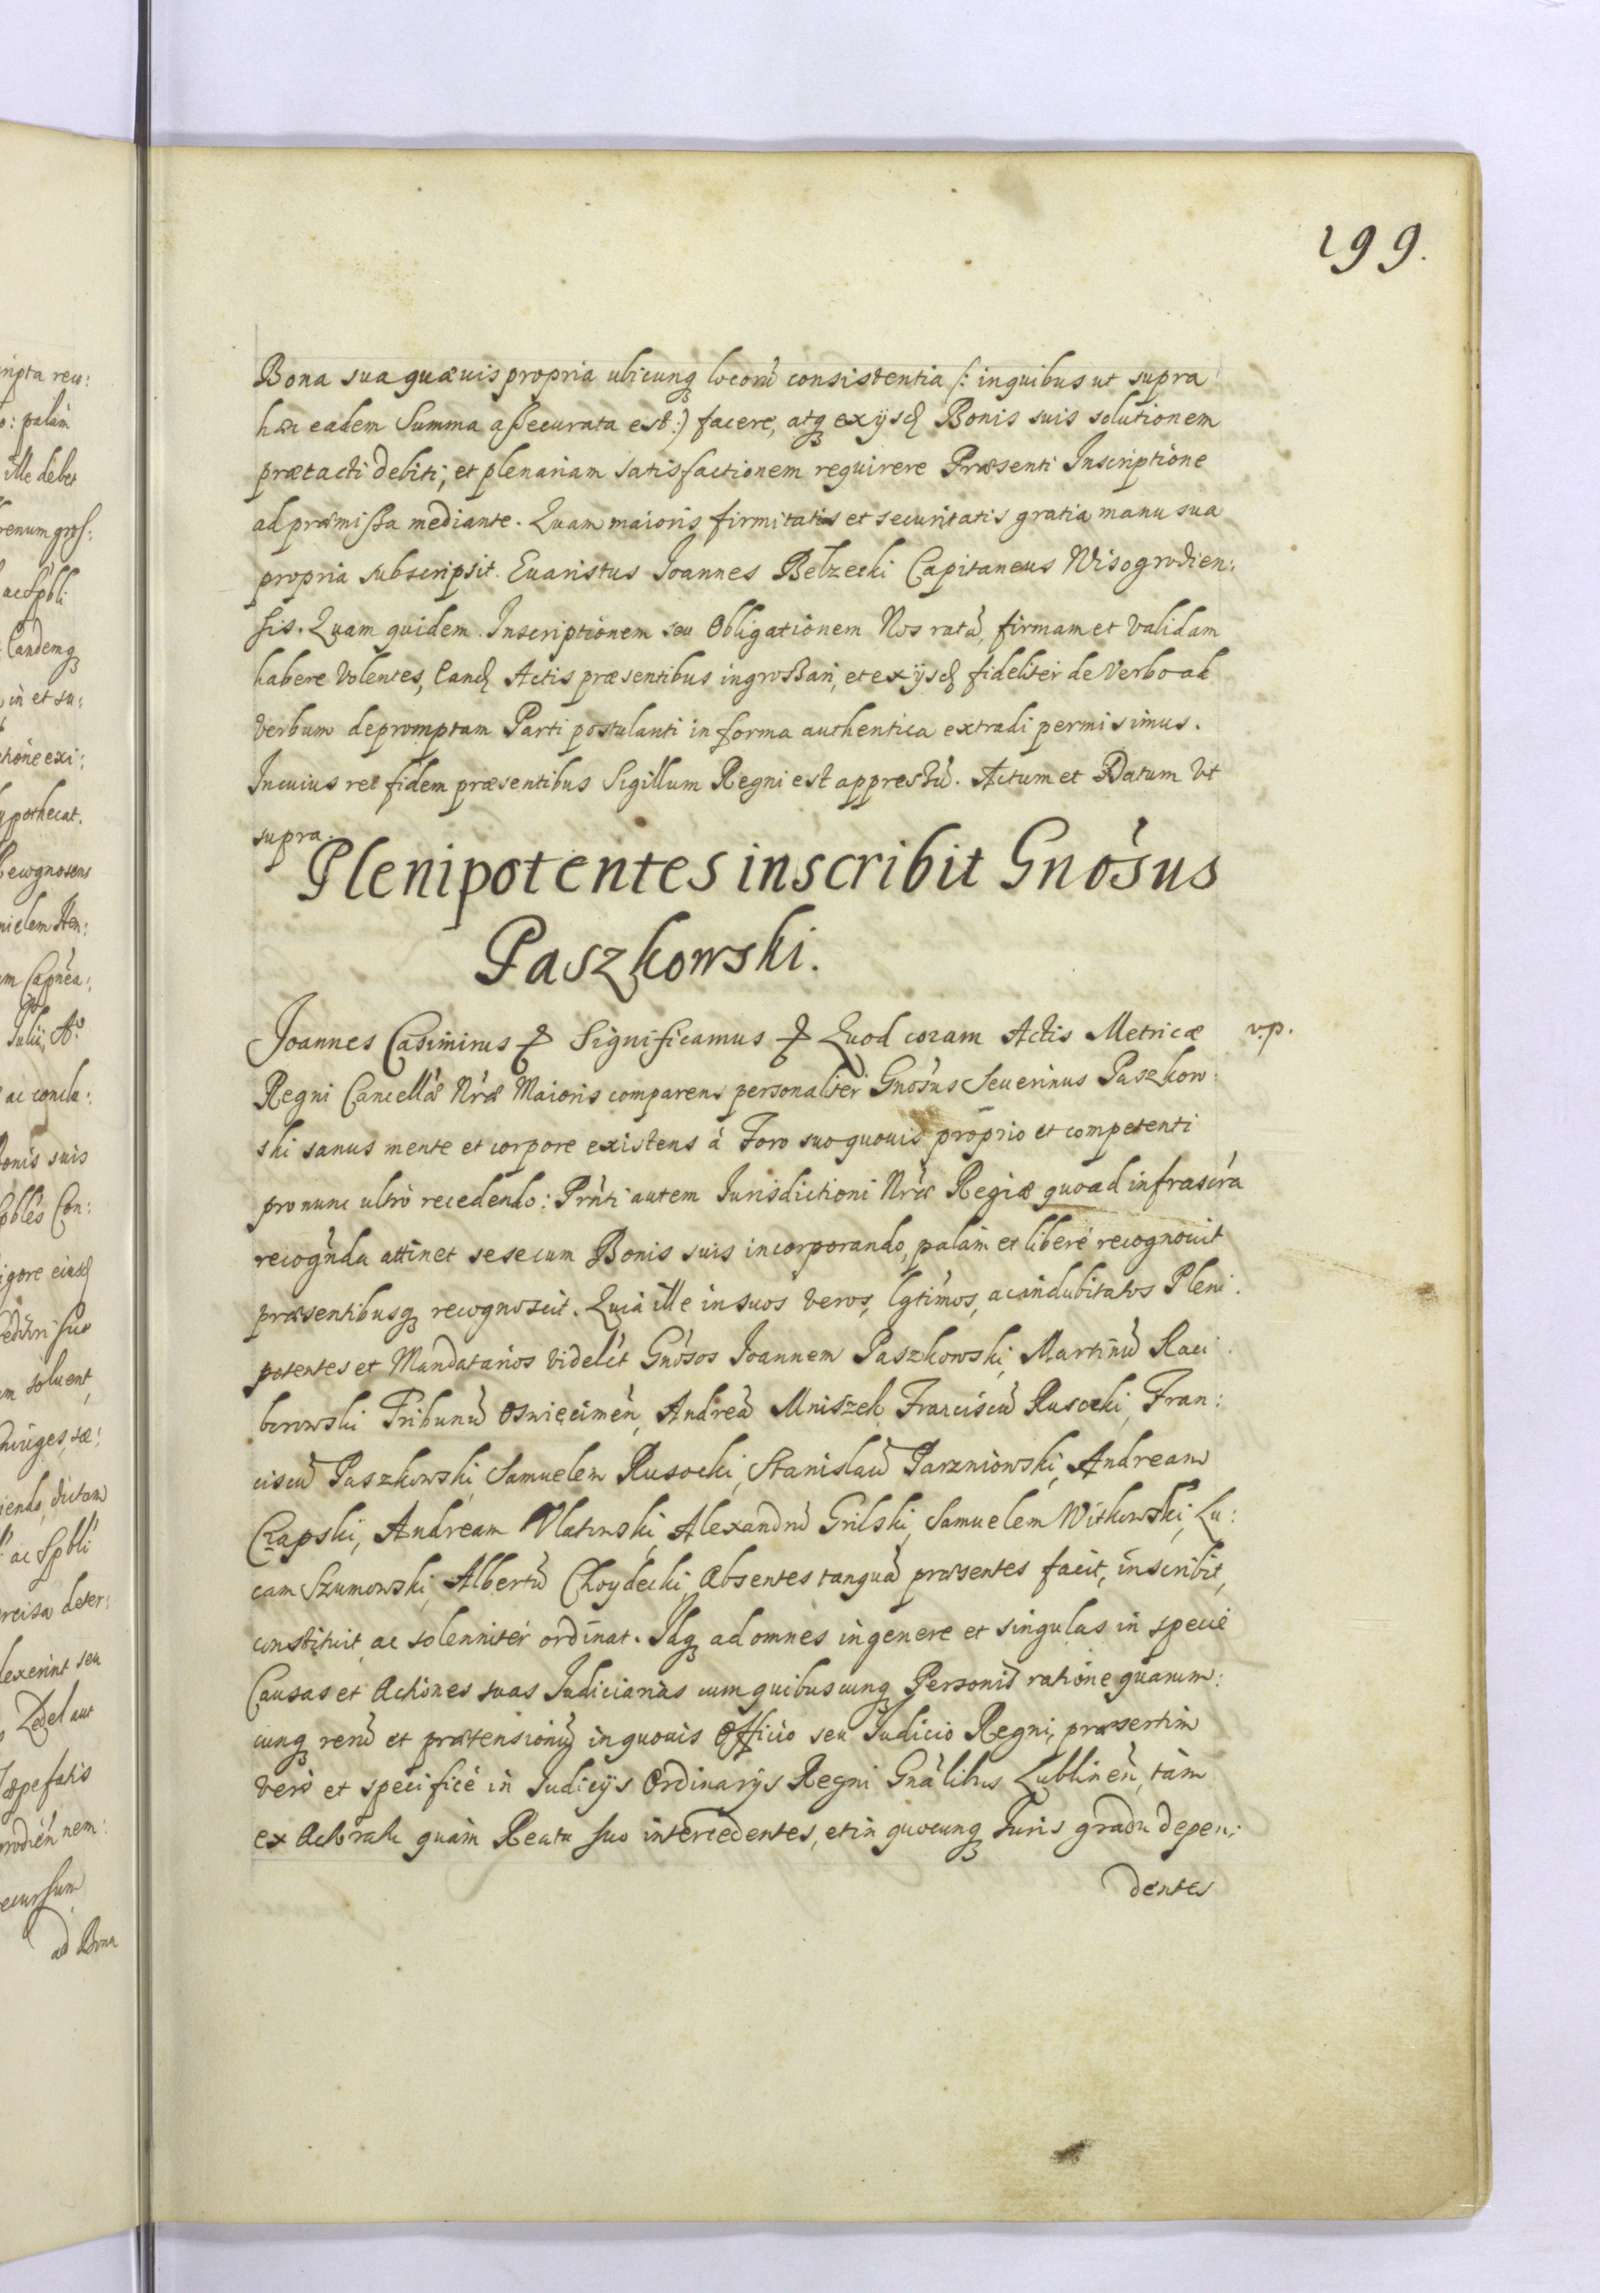 199.
Bona sua quævis propria ubicunq locorũ consistentia /: in quibus ut supra
hæc eadem Summa assecurata est :/ facere, atq ex ijsd Bonis suis solutionem
prætacti debiti, et plenariam satisfactionem requirere Præsenti Inscriptione
ad præmissa mediante. Quam maioris firmitatis et securitatis gratia manu sua
propria subscripsit. Evaristus Joannes Bełzecki Capitaneus Wisogrodien:
sis. Quam quidem Inscriptionem seu Obligationem Nos ratã, firmam et validam
habere volentes, Eand Actis præsentibus ingrossari, et ex ijsd fideliter de Verbo ad
verbum depromptam Parti postulanti in forma authentica extradi permisimus.
In cuius rei fidem præsentibus Sigillum Regni est appressũ. Actum et Datum Vt
supra.
Plenipotentes inscribit Gnósus
Paszkowski.
Joannes Casimirus & Significamus & Quod coram Actis Metricæ
v.p.
Regni Cancellæ Nræ Maioris comparens personaliter Gnósus Severinus Paszkow:
ski sanus mente et corpore existens à Foro suo quovis proprio et competenti
pro nunc ultrò recedendo: Prńti autem Jurisdictioni Nræ Regiæ quoad infrascra
recogńda attinet sese cum Bonis suis incorporando, palàm et liberè recognovit
præsentibusq recognoscit. Quià ille in suos veros, lgtimos, ac indubitatos Pleni:
potentes et Mandatarios videlćt Gnósos Joannem Paszkowski, Martinũ Raci:
borowski Tribunũ Osnięcimeń, Andreã Mniszek Franciscũ Rusocki, Fran:
ciscũ Paszkowski, Samuelem Rusocki, Stanislaũ Parzniowski, Andream
Czapski, Andream Vlatowski, Alexandrũ Grilski, Samuelem Witkowski, Lu:
cam Szumowski, Albertũ Choydecki, Absentes tanquã præsentes facit, inscribit,
constituit, ac solenniter ordinat. Idq ad omnes in genere et singulas in specie
Causas et Actiones suas Judiciarias cum quibuscunq Personis ratione quarum:
cunq rerũ et prætensionũ in quovis Officio seu Judicio Regni, præsertim
verò et specificè in Judicijs Ordinarijs Regni Gnálibus Lublineń, tàm
ex Actoratu quàm Reatu suo intercedentes, et in quocunq Juris gradu depen:
dentes